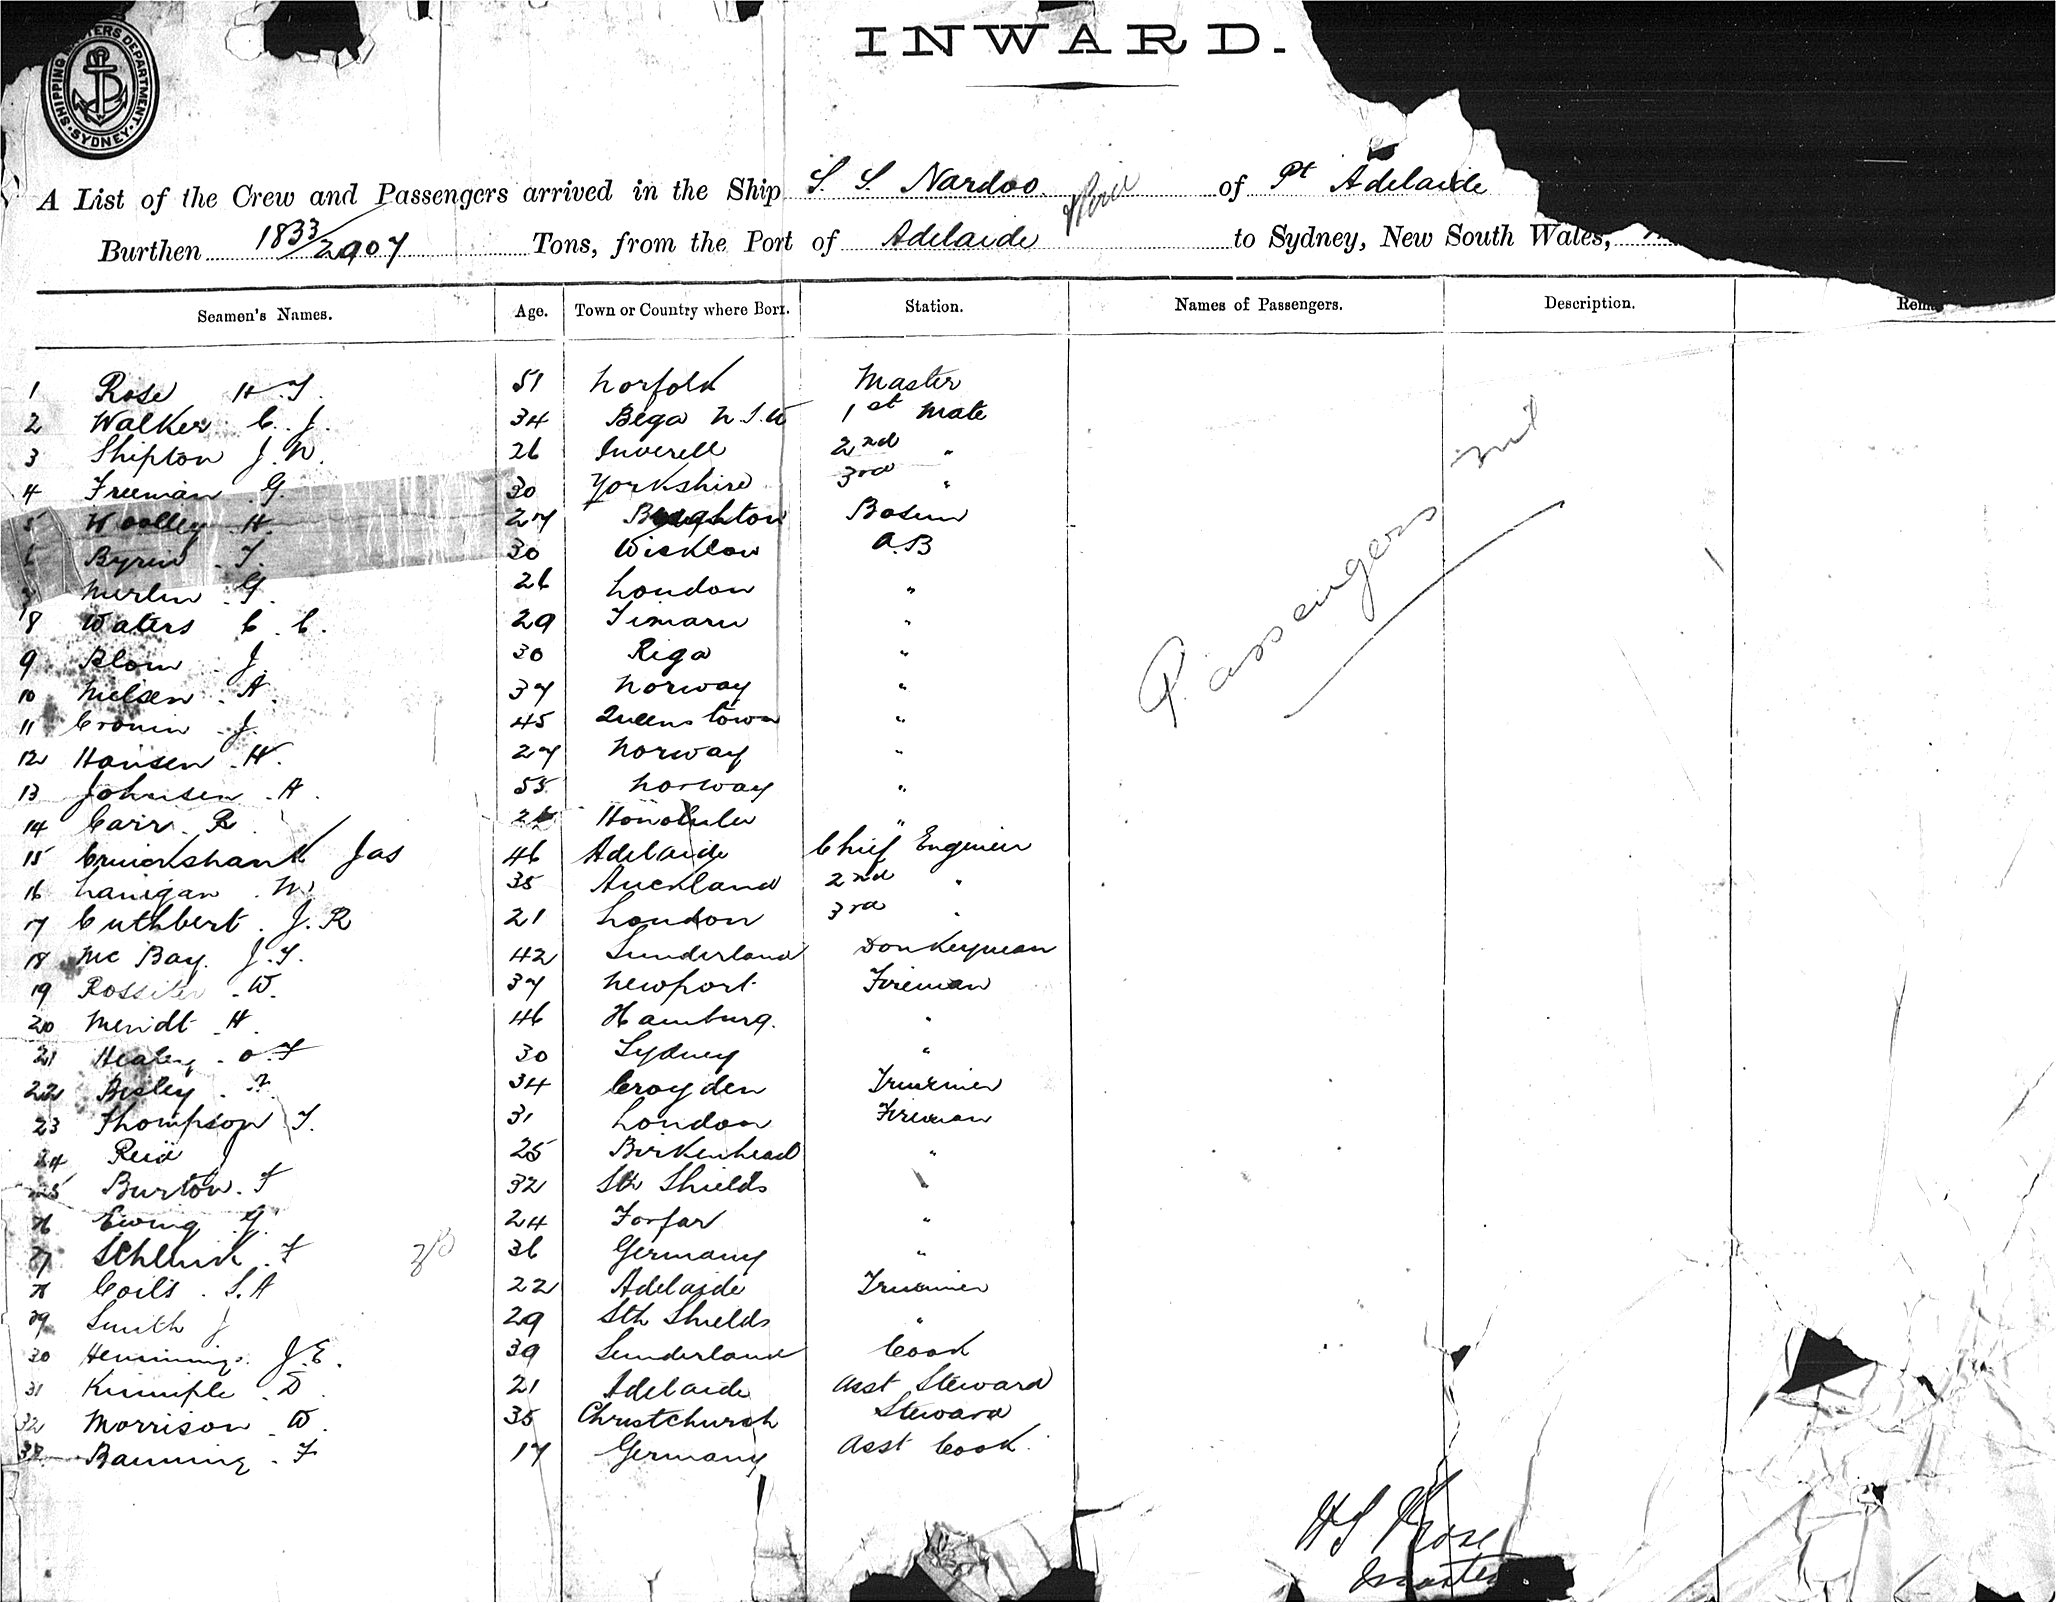 SHIPPING MASTERS DEPARTMENT
SYDNEY
INWARD.
A List of the Crew and Passengers arrived in the Ship S. S. Nardoo of Pt Adelaide
Burthen 1833/2907 Tons, from the Port of Adelaide to Sydney, New South Wales,
Seamen's Names. Age. Town or Country where Born. Station. Names of Passengers. Description.
1 Rose H. S. 51 Norfolk Master
2 Walker C. J. 34 Bega N.S.W 1st Mate
3 Shipton J. W. 26 Inverell 2nd "
4 Freeman G. 30 Yorkshire 3rd "
5 Woolley H. 27 Bosun
6 Byrne T. 30 Wicklow A.B
7 Merlin G. 26 London "
8 Waters C. C. 29 Timaru "
9 Blom J. 30 Riga "
10 Nielsen A. 37 Norway "
11 Cronin J. 45 Queenstown "
12 Hansen H. 27 Norway "
13 Johnsen A. 55 Norway "
14 Carr R. 26 Honolulu "
15 Cruickshank Jas 46 Adelaide Chief Engineer
16 Lanigan W. 35 Auckland 2nd "
17 Cuthbert J. R 21 London 3rd "
18 Mc Bay J. T. 42 Sunderland Donkeyman
19 Rossiter W. 37 Newport Fireman
20 H. 46 Hamburg. "
21 Healey O. F 30 Sydney "
22 Besley 34 Croyden Trimmer
23 Thompson T. 31 London Fireman
24 Reid J 25 Birkenhead "
25 Burton F 32 Sth Shields "
26 Ewing G. 24 Forfar "
27 F 36 Germany "
28 Coils S. A 22 Adelaide Trimmer
29 Smith J 29 Sth Shields "
30 Hemmings J. E. 39 Sunderland Cook
31 D. 21 Adelaide Asst Steward
32 Morrison W. 35 Christchurch Steward
33 Banning F 17 Germany Asst Cook
Passengers nil
H S Rose
Master.